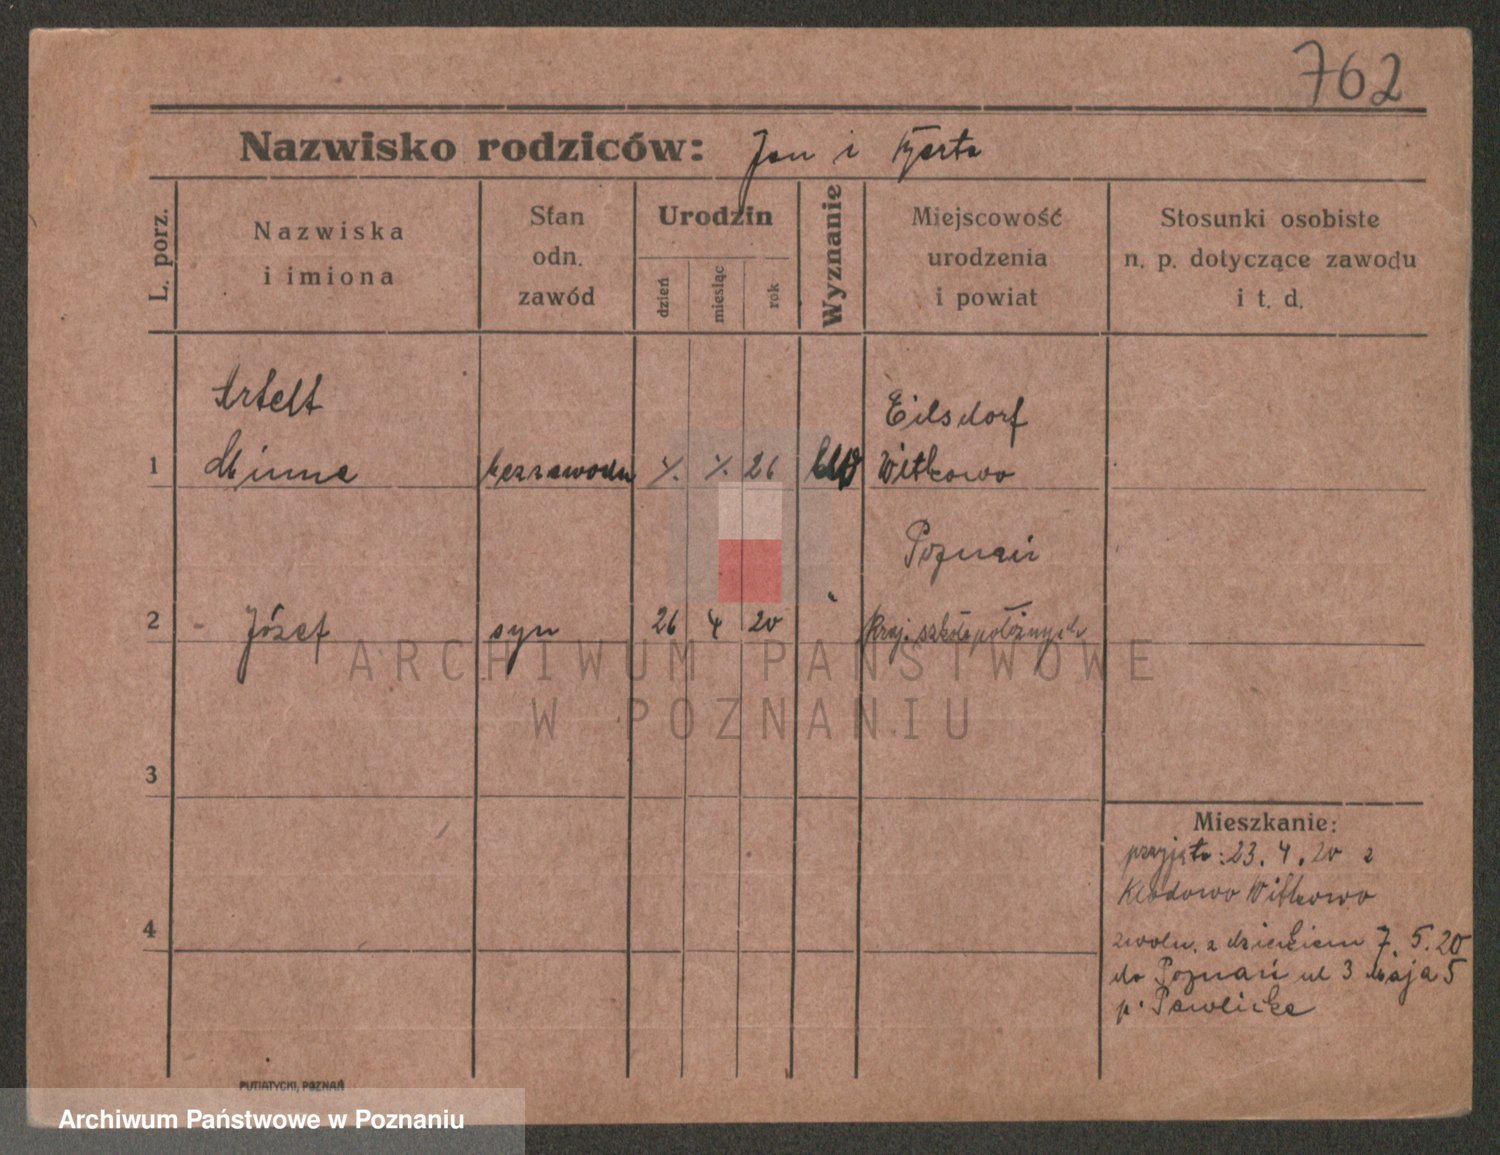 762
Nazwisko rodziców: Jan i
L. porz.
Nazwiska
i imiona
Stan
odn.
zawód
Urodzin
dzień
miesiąc
rok
Wyznanie
Miejscowość
urodzenia
i powiat
Stosunki osobiste
n. p. dotyczące zawodu
i t. d.
Artelt
Eilsdorf
1 Minna bezzawodu 26 Witkowo
Poznań
2 - Józef syn 26 4 20 " Kraj. szkoła położnych
ARCHIWUM PAŃSTWOWE
W POZNANIU
3
Mieszkanie:
przyjęto: 23. 4. 20 z
Kłodowo Witkowo
4
zwoln. z dzieckiem 7. 5. 20
do Poznań ul 3 maja 5
p. Pawlicka
PUTIATYCKI, POZNAŃ
Archiwum Państwowe w Poznaniu